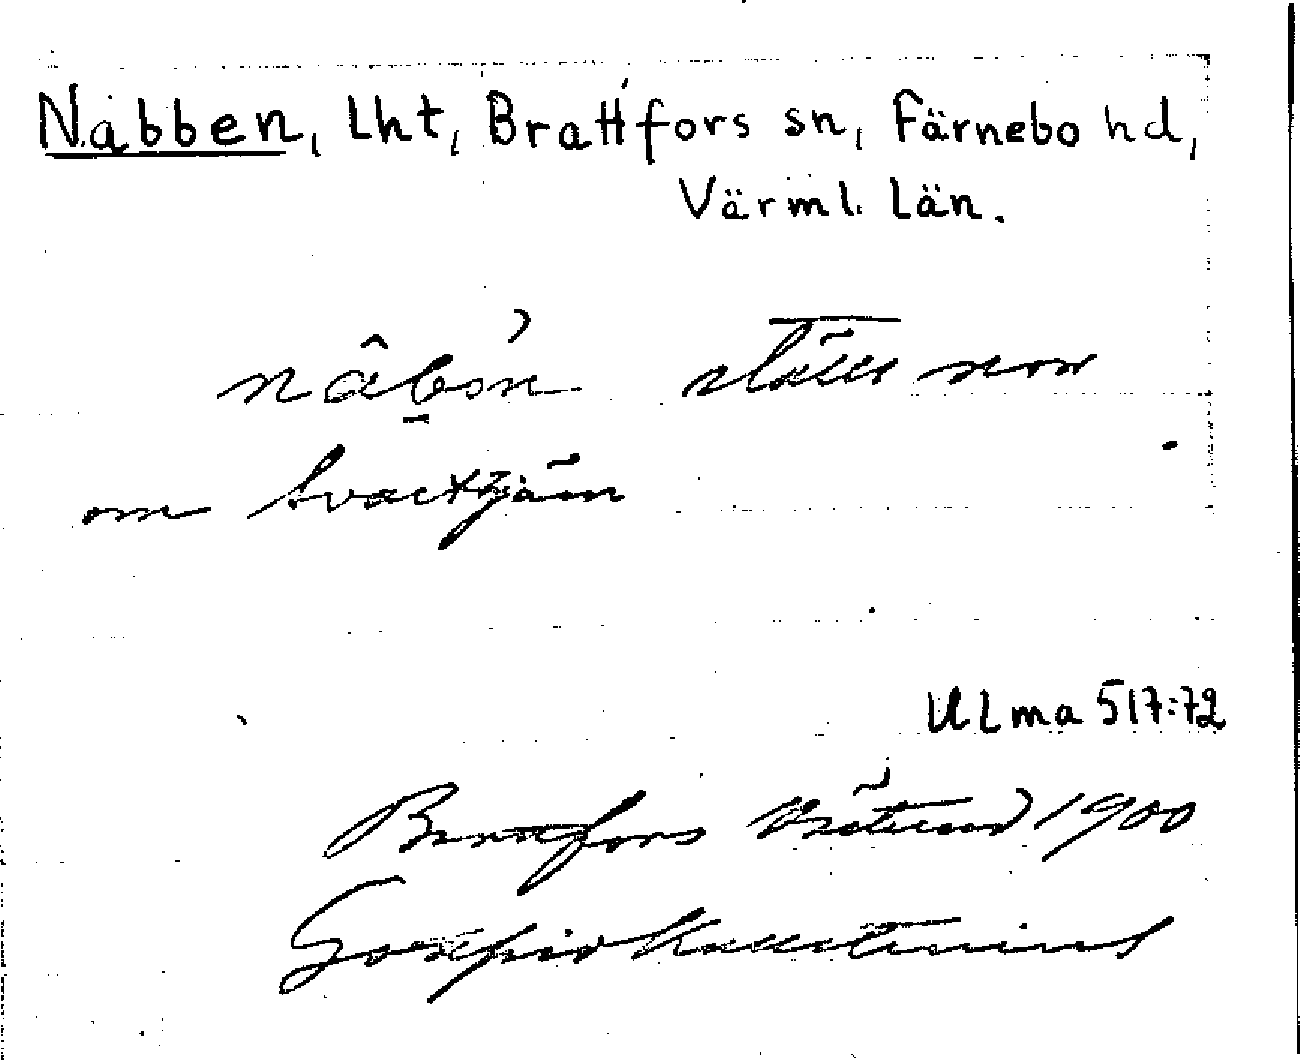 Nabben, Lht, Brattfors sn, Färnebo hd,
Värml. Län.
nâbən ställe norr
om Svarttjärn
ULma 517:72
Brattfors Västlund 1900
Gottfrid Kallstenius